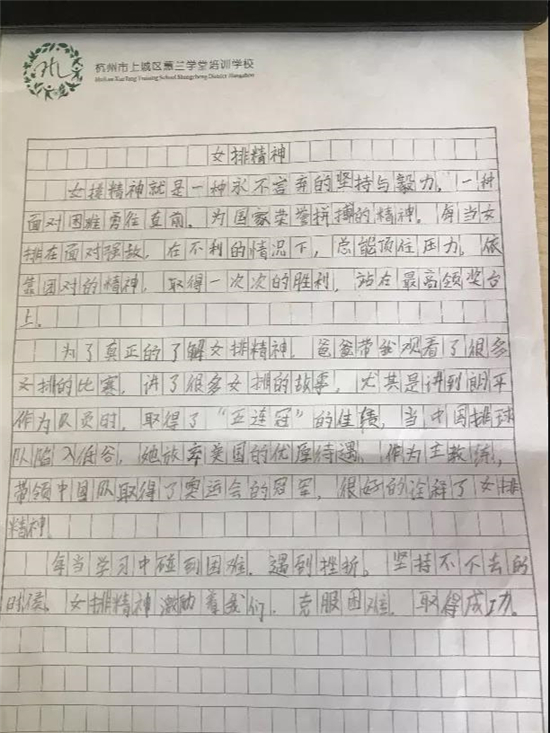 杭州市上城区蕙兰学堂培训学校
HuiLan XueTang Training School Shangcheng District Hangzhou
女排精神
女排精神就是一种永不言弃的坚持与毅力，一种
面对困难勇往直前，为国家荣誉拼搏的精神。每当女
排在面对强敌，在不利的情况下，总能顶住压力，依
靠团对的精神，取得一次次的胜利，站在最高领奖台
上。
为了真正的了解女排精神，爸爸带我观看了很多
女排的比赛，讲了很多女排的故事，尤其是讲到郎平
作为队员时，取得了“五连冠”的佳绩，当中国排球
队陷入低谷，她放弃美国的优厚待遇，作为主教练，
带领中国队取得了奥运会的冠军，很好的诠释了女排
精神。
每当学习中碰到困难，遇到挫折，坚持不下去的
时候，女排精神激励着我们，克服困难，取得成功。